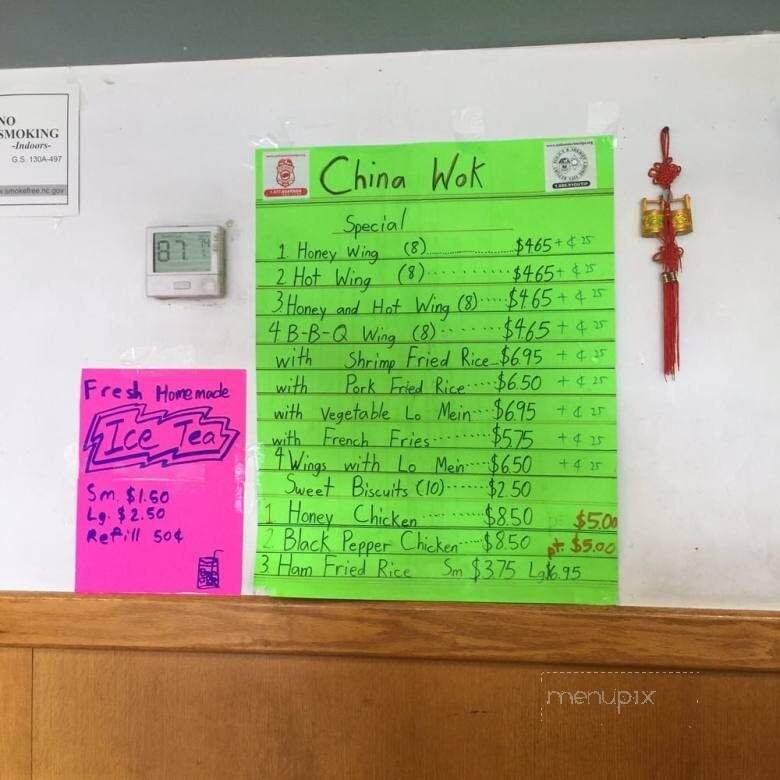 NO
SMOKING
-Indoors-
G.S. 130A-497
w.smokefree.nc.gov
87
74
Fresh Homemade
Ice Tea
Sm. $1.50
Lg. $2.50
Refill 50¢
China Wok
Special
1. Honey Wing (8)..................... $4.65 + ¢ 25
2 Hot Wing (8)........... $4.65 + ¢ 25
3. Honey and Hot Wing (8)..... $4.65 + ¢ 25
4 B-B-Q Wing (8)........ $4.65 + ¢ 25
with Shrimp Fried Rice.. $6.95 + ¢ 25
with Pork Fried Rice..... $6.50 + ¢ 25
with Vegetable Lo Mein... $6.95 + ¢ 25
with French Fries......... $5.75 + ¢ 25
4 Wings with Lo Mein..... $6.50 + ¢ 25
Sweet Biscuits (10)...... $2.50
1 Honey Chicken........... $8.50 pt. $5.00
2. Black Pepper Chicken..... $8.50 pt. $5.00
3. Ham Fried Rice Sm $3.75 Lg $6.95
menupix